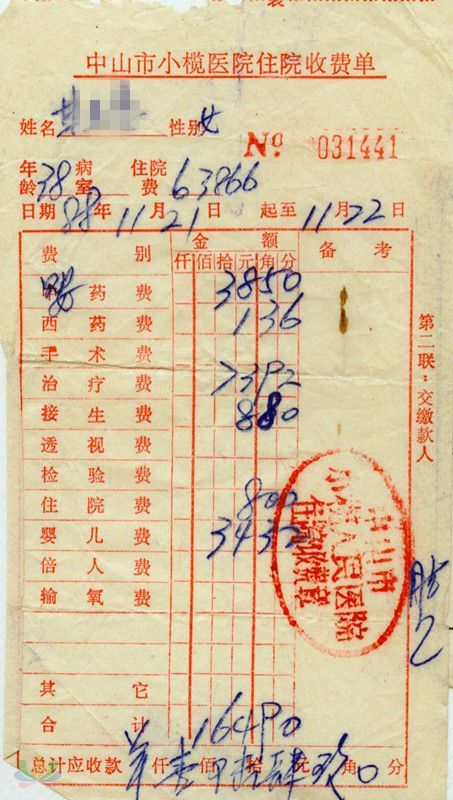 中山市小榄医院住院收费单
姓名 性别 女
№ 031441
年龄 38 病室 住院费 63866
日期 88年 11月 21日 起至 11月 22日
费别 金额 备考
仟 佰 拾 元 角 分
药费 3850
西药费 136
手术费
治疗费
接生费 880
透视费
检验费
住院费 800
婴儿费
倍人费
输氧费
其它
合计 16490
总计应收款 仟 佰 拾 元 角 分
第二联：交缴款人
中山市
小榄人民医院
住院收费章